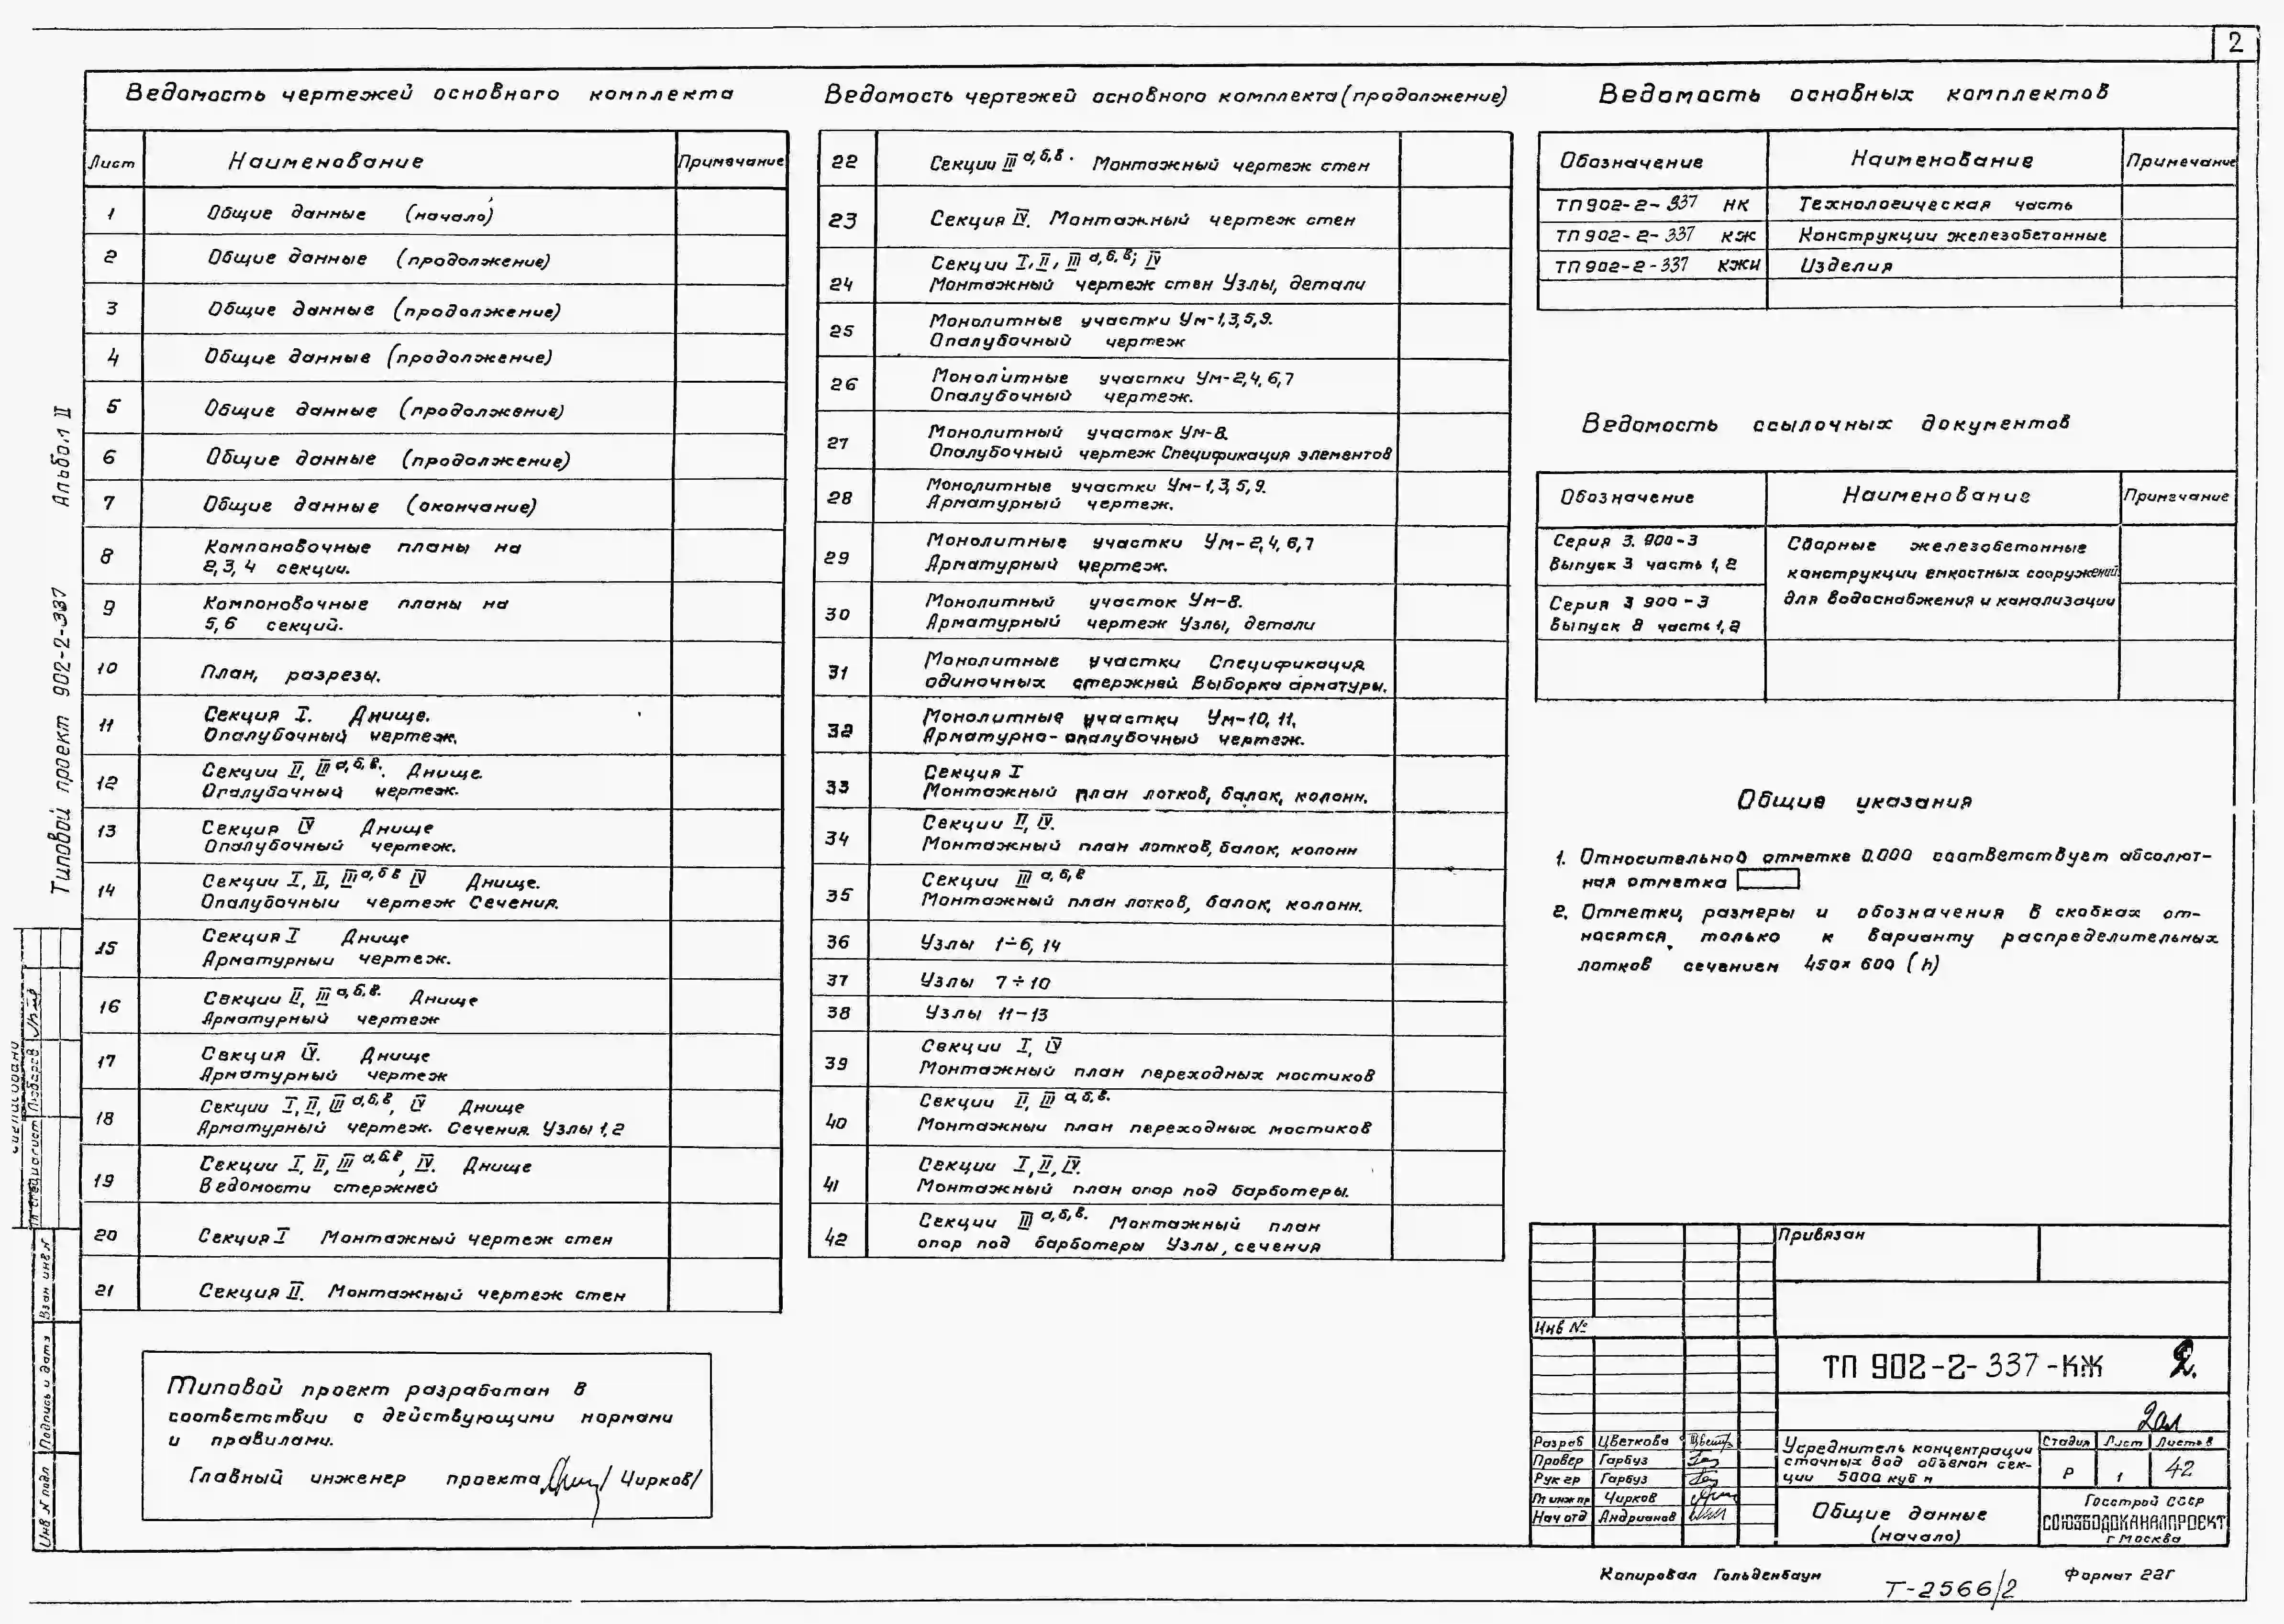 2
Ведомость чертежей основного комплекта
Лист Наименование Примечание
1 Общие данные (начало)
2 Общие данные (продолжение)
3 Общие данные (продолжение)
4 Общие данные (продолжение)
5 Общие данные (продолжение)
6 Общие данные (продолжение)
7 Общие данные (окончание)
8 Компоновочные планы на
2,3,4 секции.
9 Компоновочные планы на
5,6 секций.
10 План, разрезы.
11 Секция I. Днище.
Опалубочный чертеж.
12 Секции II, III а,б,в. Днище.
Опалубочный чертеж.
13 Секция IV Днище
Опалубочный чертеж.
14 Секции I, II, III а,б в IV Днище.
Опалубочный чертеж Сечения.
15 Секция I Днище
Арматурный чертеж.
16 Секции II, III а,б,в. Днище
Арматурный чертеж
17 Секция IV. Днище
Арматурный чертеж
18 Секции I, II, III а,б,в, IV Днище
Арматурный чертеж. Сечения. Узлы 1,2
19 Секции I, II, III а,б,в, IV. Днище
Ведомости стержней
20 Секция I Монтажный чертеж стен
21 Секция II. Монтажный чертеж стен
Типовой проект разработан в
соответствии с действующими нормами
и правилами.
Главный инженер проекта /Чирков/
Ведомость чертежей основного комплекта (продолжение)
22 Секции III а,б,в. Монтажный чертеж стен
23 Секция IV. Монтажный чертеж стен
24 Секции I, II, III а,б,в; IV
Монтажный чертеж стен Узлы, детали
25 Монолитные участки Ум-1,3,5,9.
Опалубочный чертеж
26 Монолитные участки Ум-2,4,6,7
Опалубочный чертеж.
27 Монолитный участок Ум-8.
Опалубочный чертеж Спецификация элементов
28 Монолитные участки Ум-1,3,5,9.
Арматурный чертеж.
29 Монолитные участки Ум-2,4,6,7
Арматурный чертеж.
30 Монолитный участок Ум-8.
Арматурный чертеж Узлы, детали
31 Монолитные участки Спецификация
одиночных стержней Выборка арматуры.
32 Монолитные участки Ум-10, 11,
Арматурно-опалубочный чертеж.
33 Секция I
Монтажный план лотков, балок, колонн.
34 Секции II, IV.
Монтажный план лотков, балок, колонн
35 Секции III а,б,в
Монтажный план лотков, балок, колонн.
36 Узлы 1÷6, 14
37 Узлы 7÷10
38 Узлы 11-13
39 Секции I, IV
Монтажный план переходных мостиков
40 Секции II, III а,б,в.
Монтажный план переходных мостиков
41 Секции I, II, IV.
Монтажный план опор под барботеры.
42 Секции III а,б,в. Монтажный план
опор под барботеры Узлы, сечения
Ведомость основных комплектов
Обозначение Наименование Примечание
ТП 902-2-337 НК Технологическая часть
ТП 902-2-337 КЖ Конструкции железобетонные
ТП 902-2-337 КЖИ Изделия
Ведомость ссылочных документов
Обозначение Наименование Примечание
Серия 3.900-3
Выпуск 3 часть 1,2
Серия 3 900-3
Выпуск 8 часть 1,2
Сборные железобетонные
конструкции емкостных сооружений
для водоснабжения и канализации
Общие указания
1. Относительной отметке 0.000 соответствует абсолют-
ная отметка
2. Отметки, размеры и обозначения в скобках от-
носятся только к варианту распределительных
лотков сечением 450×600 (h)
Привязан
Инв №
ТП 902-2-337-КЖ 2.
Разраб Цветкова
Провер Гарбуз
Рук гр Гарбуз
Гл инж пр Чирков
Нач отд Андрианов
Усреднитель концентрации
сточных вод объемом сек-
ции 5000 куб м
Стадия Лист Листов
Р 1 42
Общие данные
(начало)
Госстрой СССР
СОЮЗВОДОКАНАЛПРОЕКТ
г Москва
Копировал Гольденбаум
Т-2566/2
Формат 22Г
Типовой проект 902-2-337 Альбом II
Инв № подл Подпись и дата Взам инв №